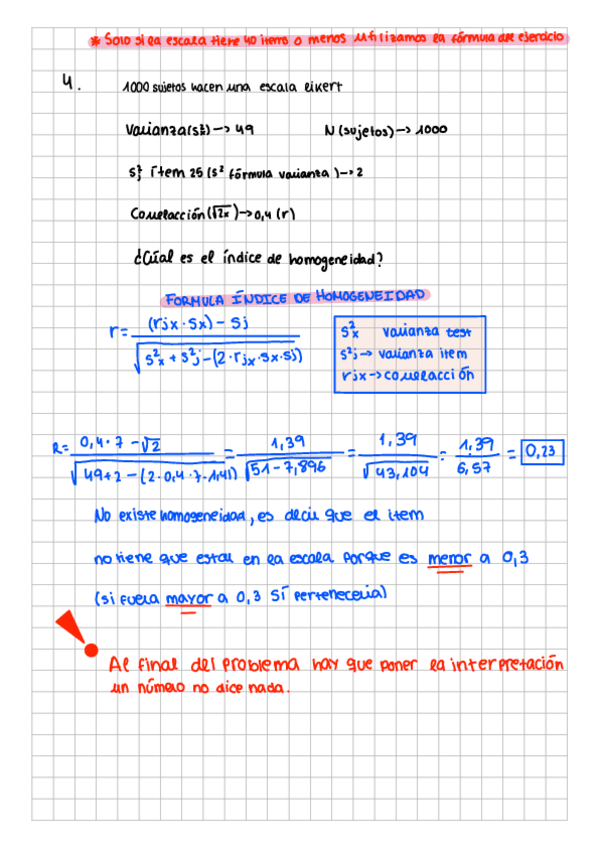 * Solo si la escala tiene 40 items o menos utilizamos la fórmula del ejercicio
4. 1000 sujetos hacen una escala likert
Varianza (s²x) –> 49 N (sujetos) –> 1000
s²j ítem 25 (s² fórmula varianza) –> 2
Correlacción (√2x) –> 0,4 (r)
¿Cúal es el índice de homogeneidad?
FORMULA ÍNDICE DE HOMOGENEIDAD
r = (rjx · sx) – sj / √s²x + s²j – (2 · rjx · sx · sj)
s²x varianza test
s²j –> varianza item
rjx –> correlacción
R = 0,4 · 7 – √2 / √49+2 – (2 · 0,4 · 7 · 1,41) = 1,39 / √51 – 7,896 = 1,39 / √43,104 = 1,39 / 6,57 = 0,23
No existe homogeneidad, es decir que el item
no tiene que estar en la escala porque es menor a 0,3
(si fuera mayor a 0,3 SÍ pertenecería)
Al final del problema hay que poner la interpretación
un número no dice nada.